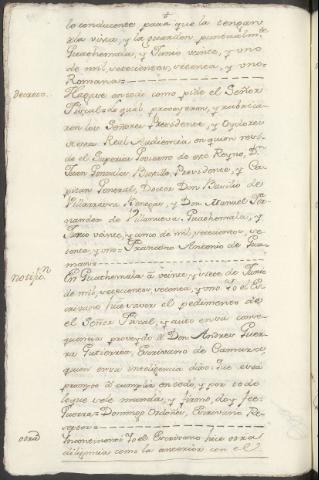 lo conducente para que la tengan
a la vista, y la guarden puntualm.te
Guathemala, y Junio veinte, y uno
de mil, setecientos, setenta, y uno=
Romana=
Decreto. Hagase en todo como pide el Señor
Fiscal= Lo qual, proveyeron, y rubrica-
ron los Señores Presidente, y Oydores
de esta Real Audiencia en quien resi-
de el Superior Govierno de este Reyno, D.n
Juan Gonzalez Bustillo, Presidente, y Ca-
pitan General, Doctor Don Basilio de
Villarrasa Venegas, y Don Manuel Fer-
nandez de Villanueva= Guathemala, y
Junio veinte, y uno de mil, setecientos, se-
tenta, y uno= Francisco Antonio de Guz-
man=
Notific.n En Guathemala á veinte, y siete de Junio
de mil, setecientos, setenta, y uno Yo el Es-
crivano hice saver el pedimento de
el Señor Fiscal, y auto en su conse-
quencia proveydo á Don Andres Guerra
Gutierrez, Escrivano de Camara,
quien en su inteligencia dixo: que está
prompto á cumplir en todo, y por todo
lo que se le manda, y firmó, doy fee=
Guerra= Domingo Ordoñez, Escrivano Re-
ceptor=
otra Incontinenti Yo el Escrivano hice otra
diligencia como la anterior con el